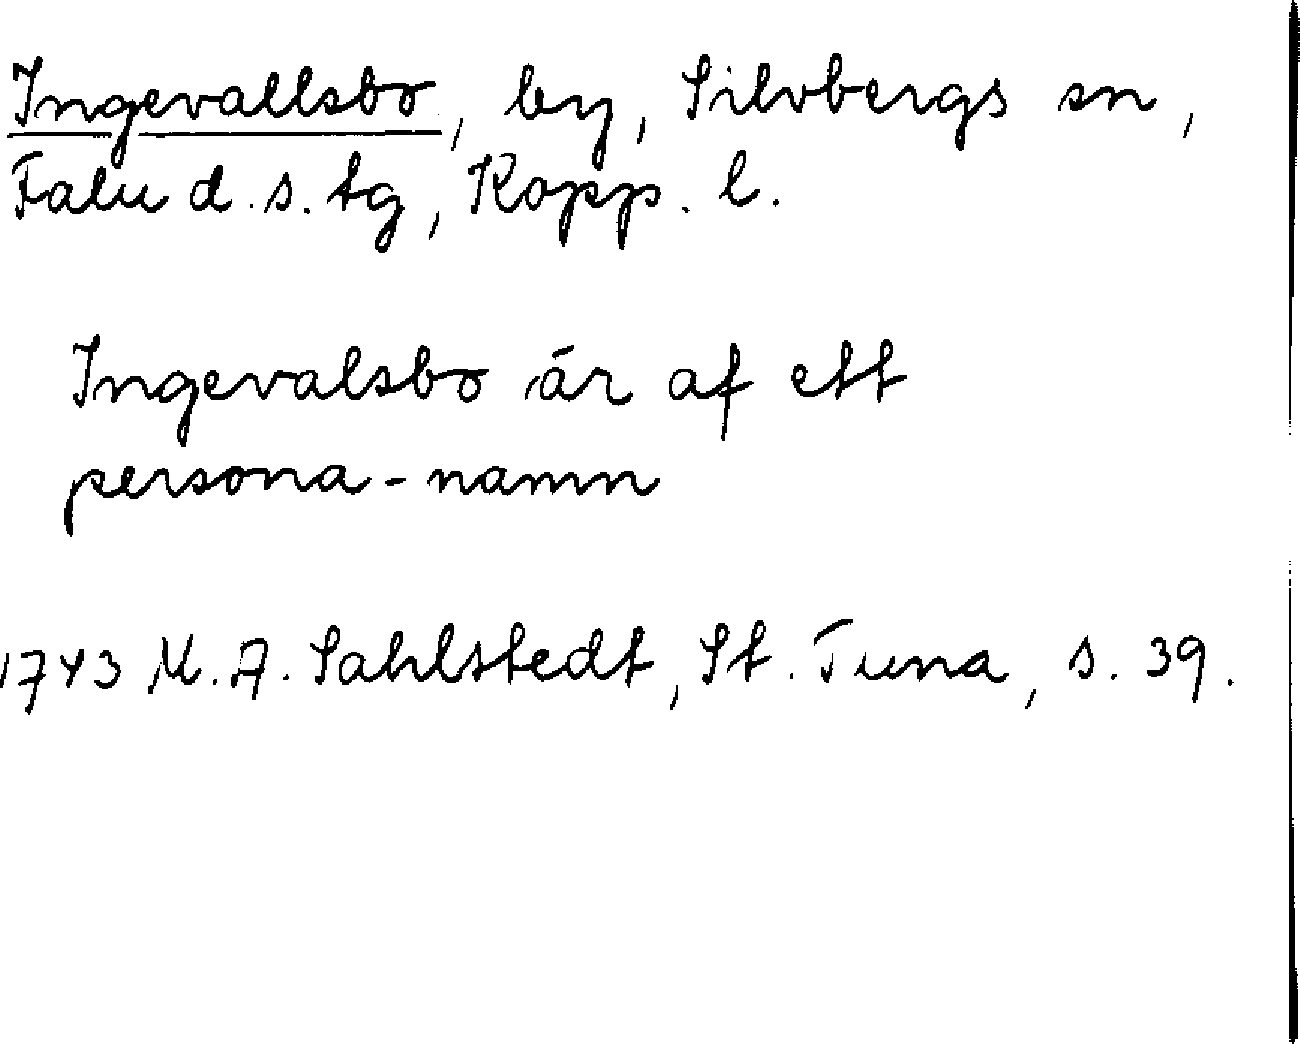 Ingevallsbo, by, Silvbergs sn,
Falu d.s. tg, Kopp. l.
Ingevalsbo är af ett
persona-namn
1743 M. A. Sahlstedt, St. Tuna, s. 39.